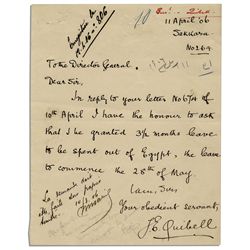 11 April '06
Sakkara
To the Director General.
Dear Sir,
In reply your letter No
10th April I have the honour to ask
that I be granted 3½ months leave
to be spent out of Egypt, the leave
to commence the 28th of May
I am, Sir,
Your obedient servant,
J E Quibell
La demande doit
être faite sur papier
timbré.